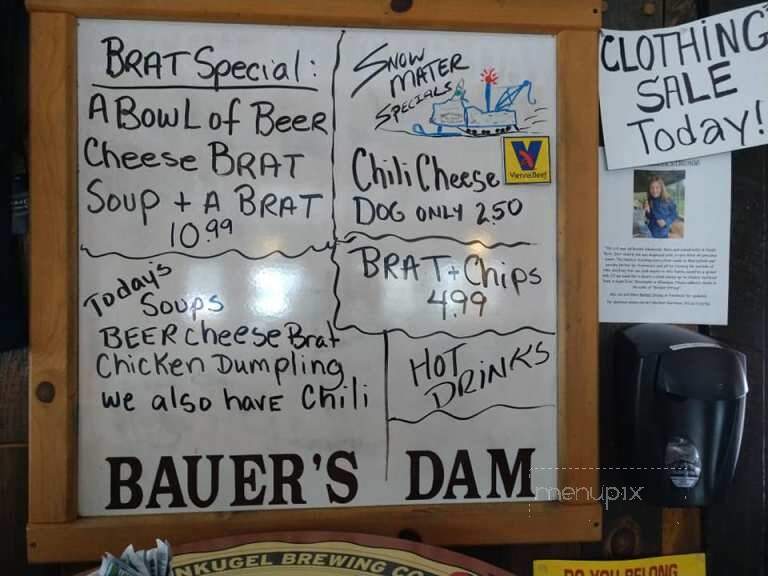 BRAT Special:
A BowL of Beer
Cheese BRAT
Soup + A BRAT
10.99
Today's
Soups
BEER Cheese Brat
Chicken Dumpling
we also have Chili
SNOW
MATER
SPECIALS
Chili Cheese
DOG ONLY 2.50
V
Vienna Beef
BRAT + Chips
4.99
HOT
DRINKS
BAUER'S DAM
CLOTHING
SALE
Today!
menupix
NKUGEL BREWING CO
DO YOU BELONG